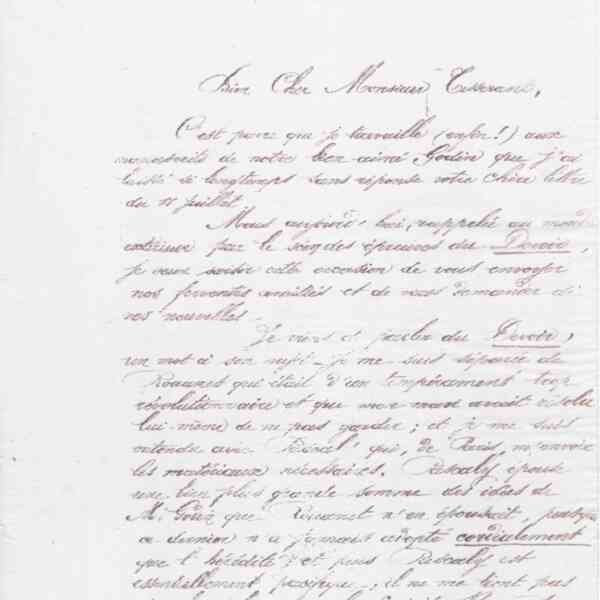 Bien Cher Monsieur Tisserant,
C'est parce que je travaille (enfin!) aux
manuscrits de notre bien aimé Godin que j'ai
laissé si longtemps sans réponse votre chère lettre
du 11 Juillet.
Mais aujourd'hui, rappelée au monde
extérieur par le soin des épreuves du Devoir,
je veux saisir cette occasion de vous envoyer
nos ferventes amitiés et de vous demander de
vos nouvelles.
Je viens de parler du Devoir,
un mot à son sujet. Je me suis séparée de
Rouanet qui était d'un tempérament trop
révolutionnaire et que mon mari avait résolu
lui-même de ne pas garder; et je me suis
entendue avec Pascaly qui, de Paris, m'envoie
les matériaux nécessaires. Pascaly épouse
une bien plus grande somme des idées de
M. Godin que Rouanet n'en épousait, puisque
ce dernier n'a jamais adopté cordialement
que l'hérédité; et puis Pascaly est
essentiellement pacifique, il ne me tient pas